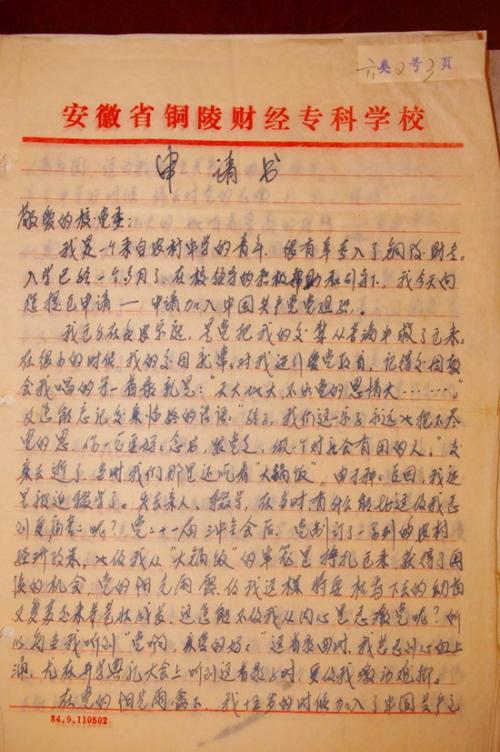 六类2号3頁
安徽省铜陵财经专科学校
申请书
敬爱的校党委:
我是一个来自农村中学的青年,很有幸考入了铜陵财专。
入学已经一个多月了,在校领导的积极帮助和引导下,我今天向
组织申请——申请加入中国共产党组织。
我出生在农民家庭,是党把我的父辈从苦海中救了出来。
在很小的时候,我的父母就 对我进行爱党教育,记得父母教
会我唱的第一首歌就是:“天大地大不如党的恩情大……。”
又怎能忘记父亲临终的话语:“孩子,我们这一家子永远也报不尽
党的恩,你一定要好好念书,跟党走,做一个对社会有用的人。”父
亲去逝了,当时我们那里还吃着“大锅饭”,由于种种原因,我还
是被迫辍学了。失去亲人、辍学,在当时有什么能比这使我感
到更痛苦呢?党的十一届三中全会后,党制订了一系列的农村
经济改革,也使我从“大锅饭”的牢笼里挣扎出来,获得了回
校的机会,党的阳光雨露,使我这棵将要枯萎下去的幼苗
又复苏出来茁壮成长,这怎能不使我从内心里感激党呢?所
以每当我听到“党啊,亲爱的妈妈”这首歌曲时,我总感到心血上
涌,尤在开学典礼大会上听到这首歌子时,更使我激动难抑。
在党的阳光雨露下,我十五岁的时候加入了中国共产主
84.9.110502